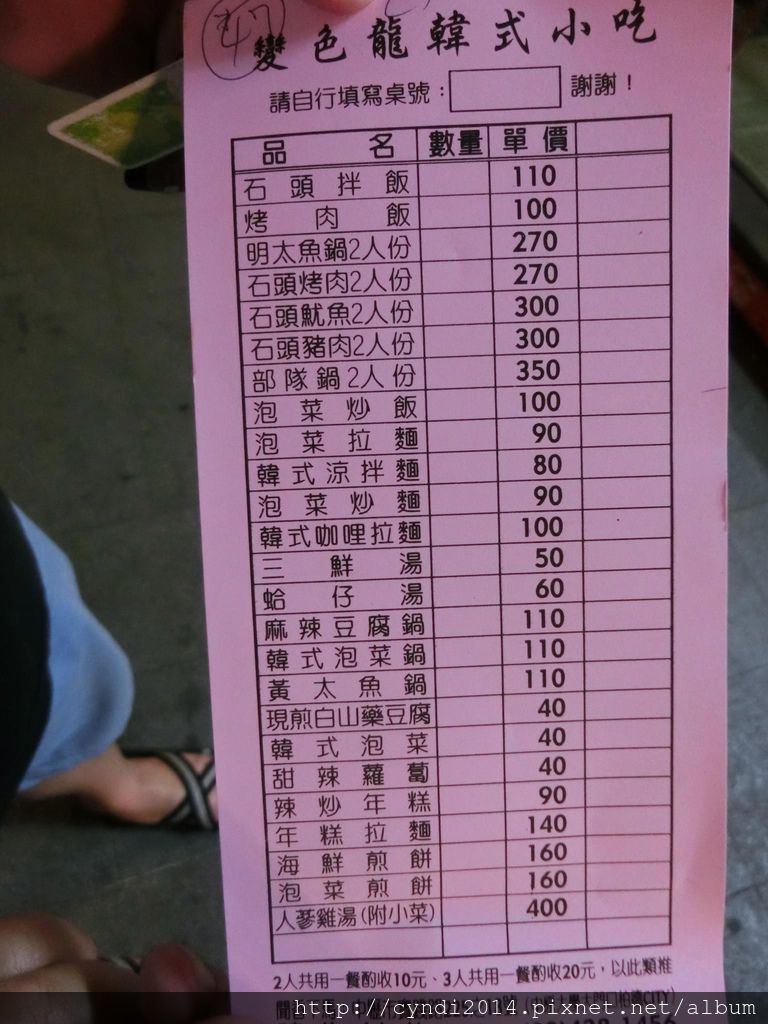 變色龍韓式小吃
請自行填寫桌號： 謝謝！
品名 數量 單價
石頭拌飯 110
烤肉飯 100
明太魚鍋2人份 270
石頭烤肉2人份 270
石頭魷魚2人份 300
石頭豬肉2人份 300
部隊鍋2人份 350
泡菜炒飯 100
泡菜拉麵 90
韓式涼拌麵 80
泡菜炒麵 90
韓式咖哩拉麵 100
三鮮湯 50
蛤仔湯 60
麻辣豆腐鍋 110
韓式泡菜鍋 110
黃太魚鍋 110
現煎白山藥豆腐 40
韓式泡菜 40
甜辣蘿蔔 40
辣炒年糕 90
年糕拉麵 140
海鮮煎餅 160
泡菜煎餅 160
人蔘雞湯(附小菜) 400
2人共用一餐酌收10元、3人共用一餐酌收20元，以此類推
http://cyndi2014.pixnet.net/album